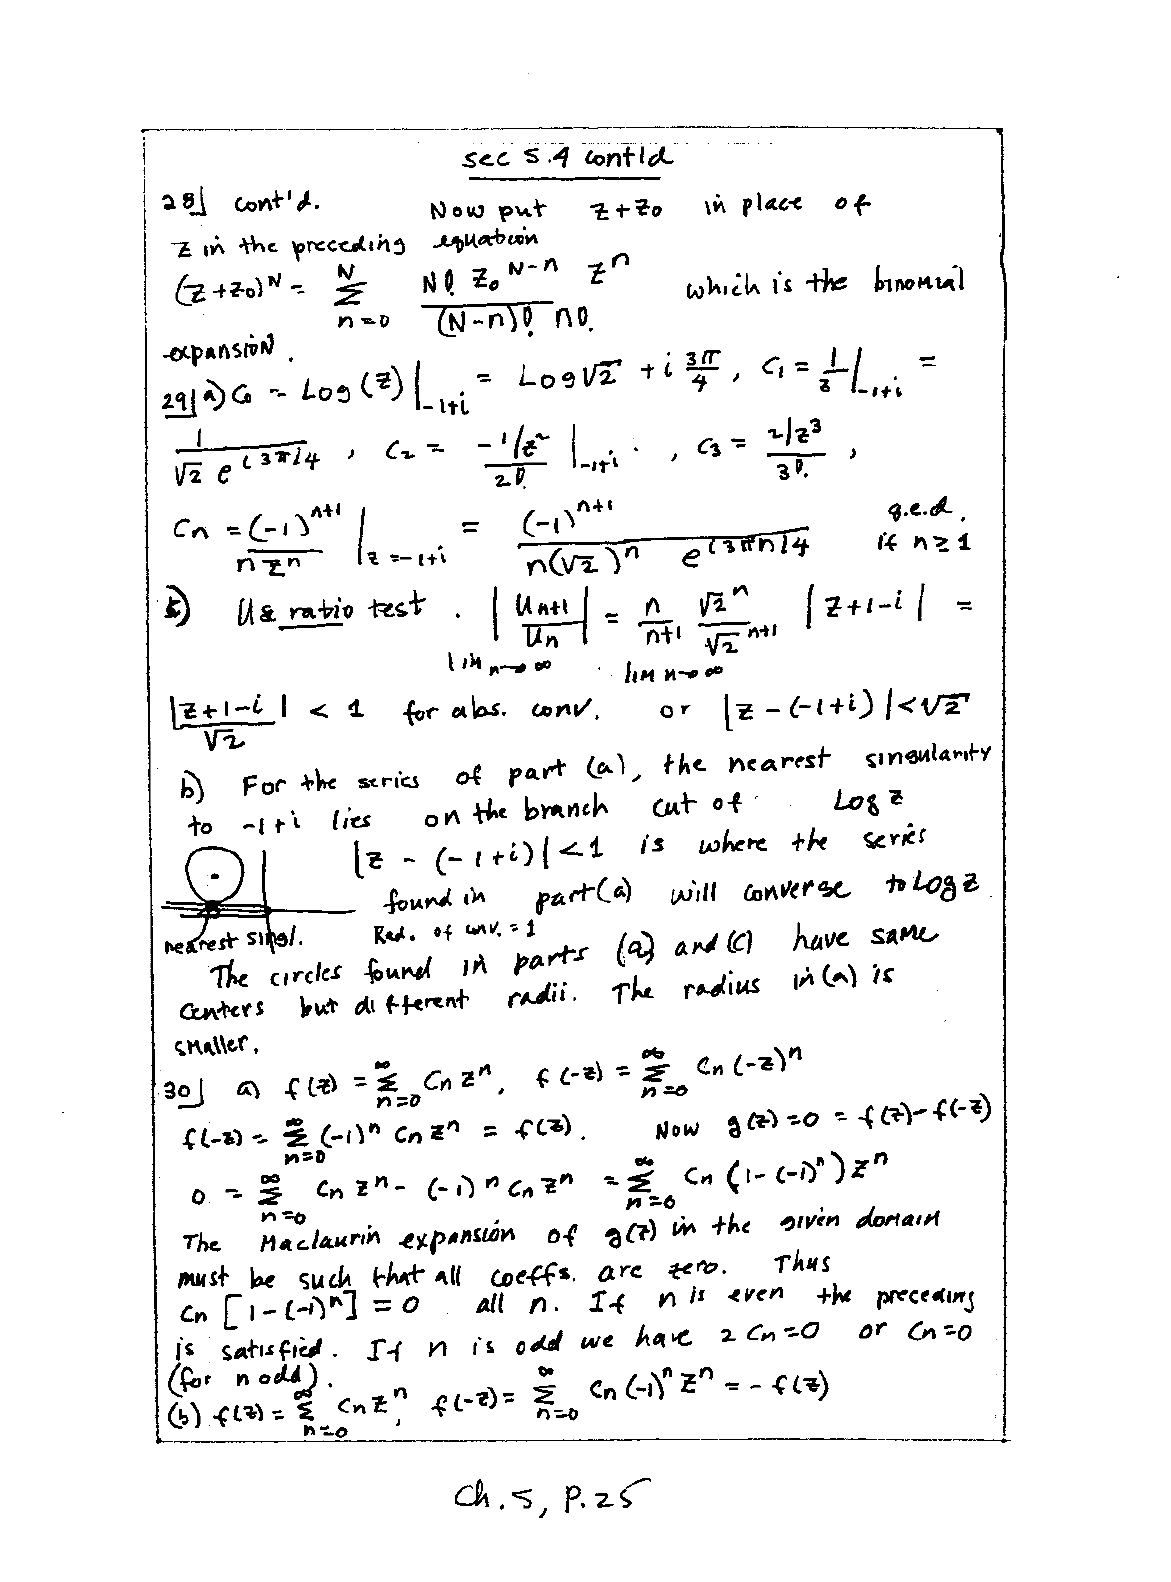 sec 5.4 cont'd
28] cont'd. Now put z+z₀ in place of
z in the preceding equation
(z+z₀)^N = Σ_{n=0}^{N} N! z₀^{N-n} z^n / ((N-n)! n!) which is the binomial
expansion.
29] a) c₀ = Log(z)|_{-1+i} = Log√2 + i 3π/4, c₁ = 1/z|_{-1+i} =
1/(√2 e^{i3π/4}), c₂ = (-1/z²)/2!|_{-1+i}, c₃ = (2/z³)/3!,
cn = (-1)^{n+1}/(n z^n)|_{z=-1+i} = (-1)^{n+1}/(n(√2)^n e^{i3πn/4}) q.e.d. if n≥1
c) Use ratio test. lim n→∞ |U_{n+1}/U_n| = lim n→∞ n/(n+1) √2^n/√2^{n+1} |z+1-i| =
|z+1-i|/√2 < 1 for abs. conv. or |z-(-1+i)|<√2
b) For the series of part (a), the nearest singularity
to -1+i lies on the branch cut of Log z
|z-(-1+i)|<1 is where the series
found in part(a) will converge to Log z
nearest singl. Rad. of conv. = 1
The circles found in parts (a) and (c) have same
centers but different radii. The radius in (a) is
smaller.
30] a) f(z) = Σ_{n=0}^{∞} cn z^n, f(-z) = Σ_{n=0}^{∞} cn (-z)^n
f(-z) = Σ_{n=0}^{∞} (-1)^n cn z^n = f(z). Now g(z)=0 = f(z)-f(-z)
0 = Σ_{n=0}^{∞} cn z^n - (-1)^n cn z^n = Σ_{n=0}^{∞} cn (1-(-1)^n) z^n
The Maclaurin expansion of g(z) in the given domain
must be such that all coeffs. are zero. Thus
cn [1-(-1)^n] = 0 all n. If n is even the preceding
is satisfied. If n is odd we have 2cn=0 or cn=0
(for n odd).
(b) f(z) = Σ_{n=0}^{∞} cn z^n, f(-z) = Σ_{n=0}^{∞} cn (-1)^n z^n = -f(z)
Ch. 5, P. 25